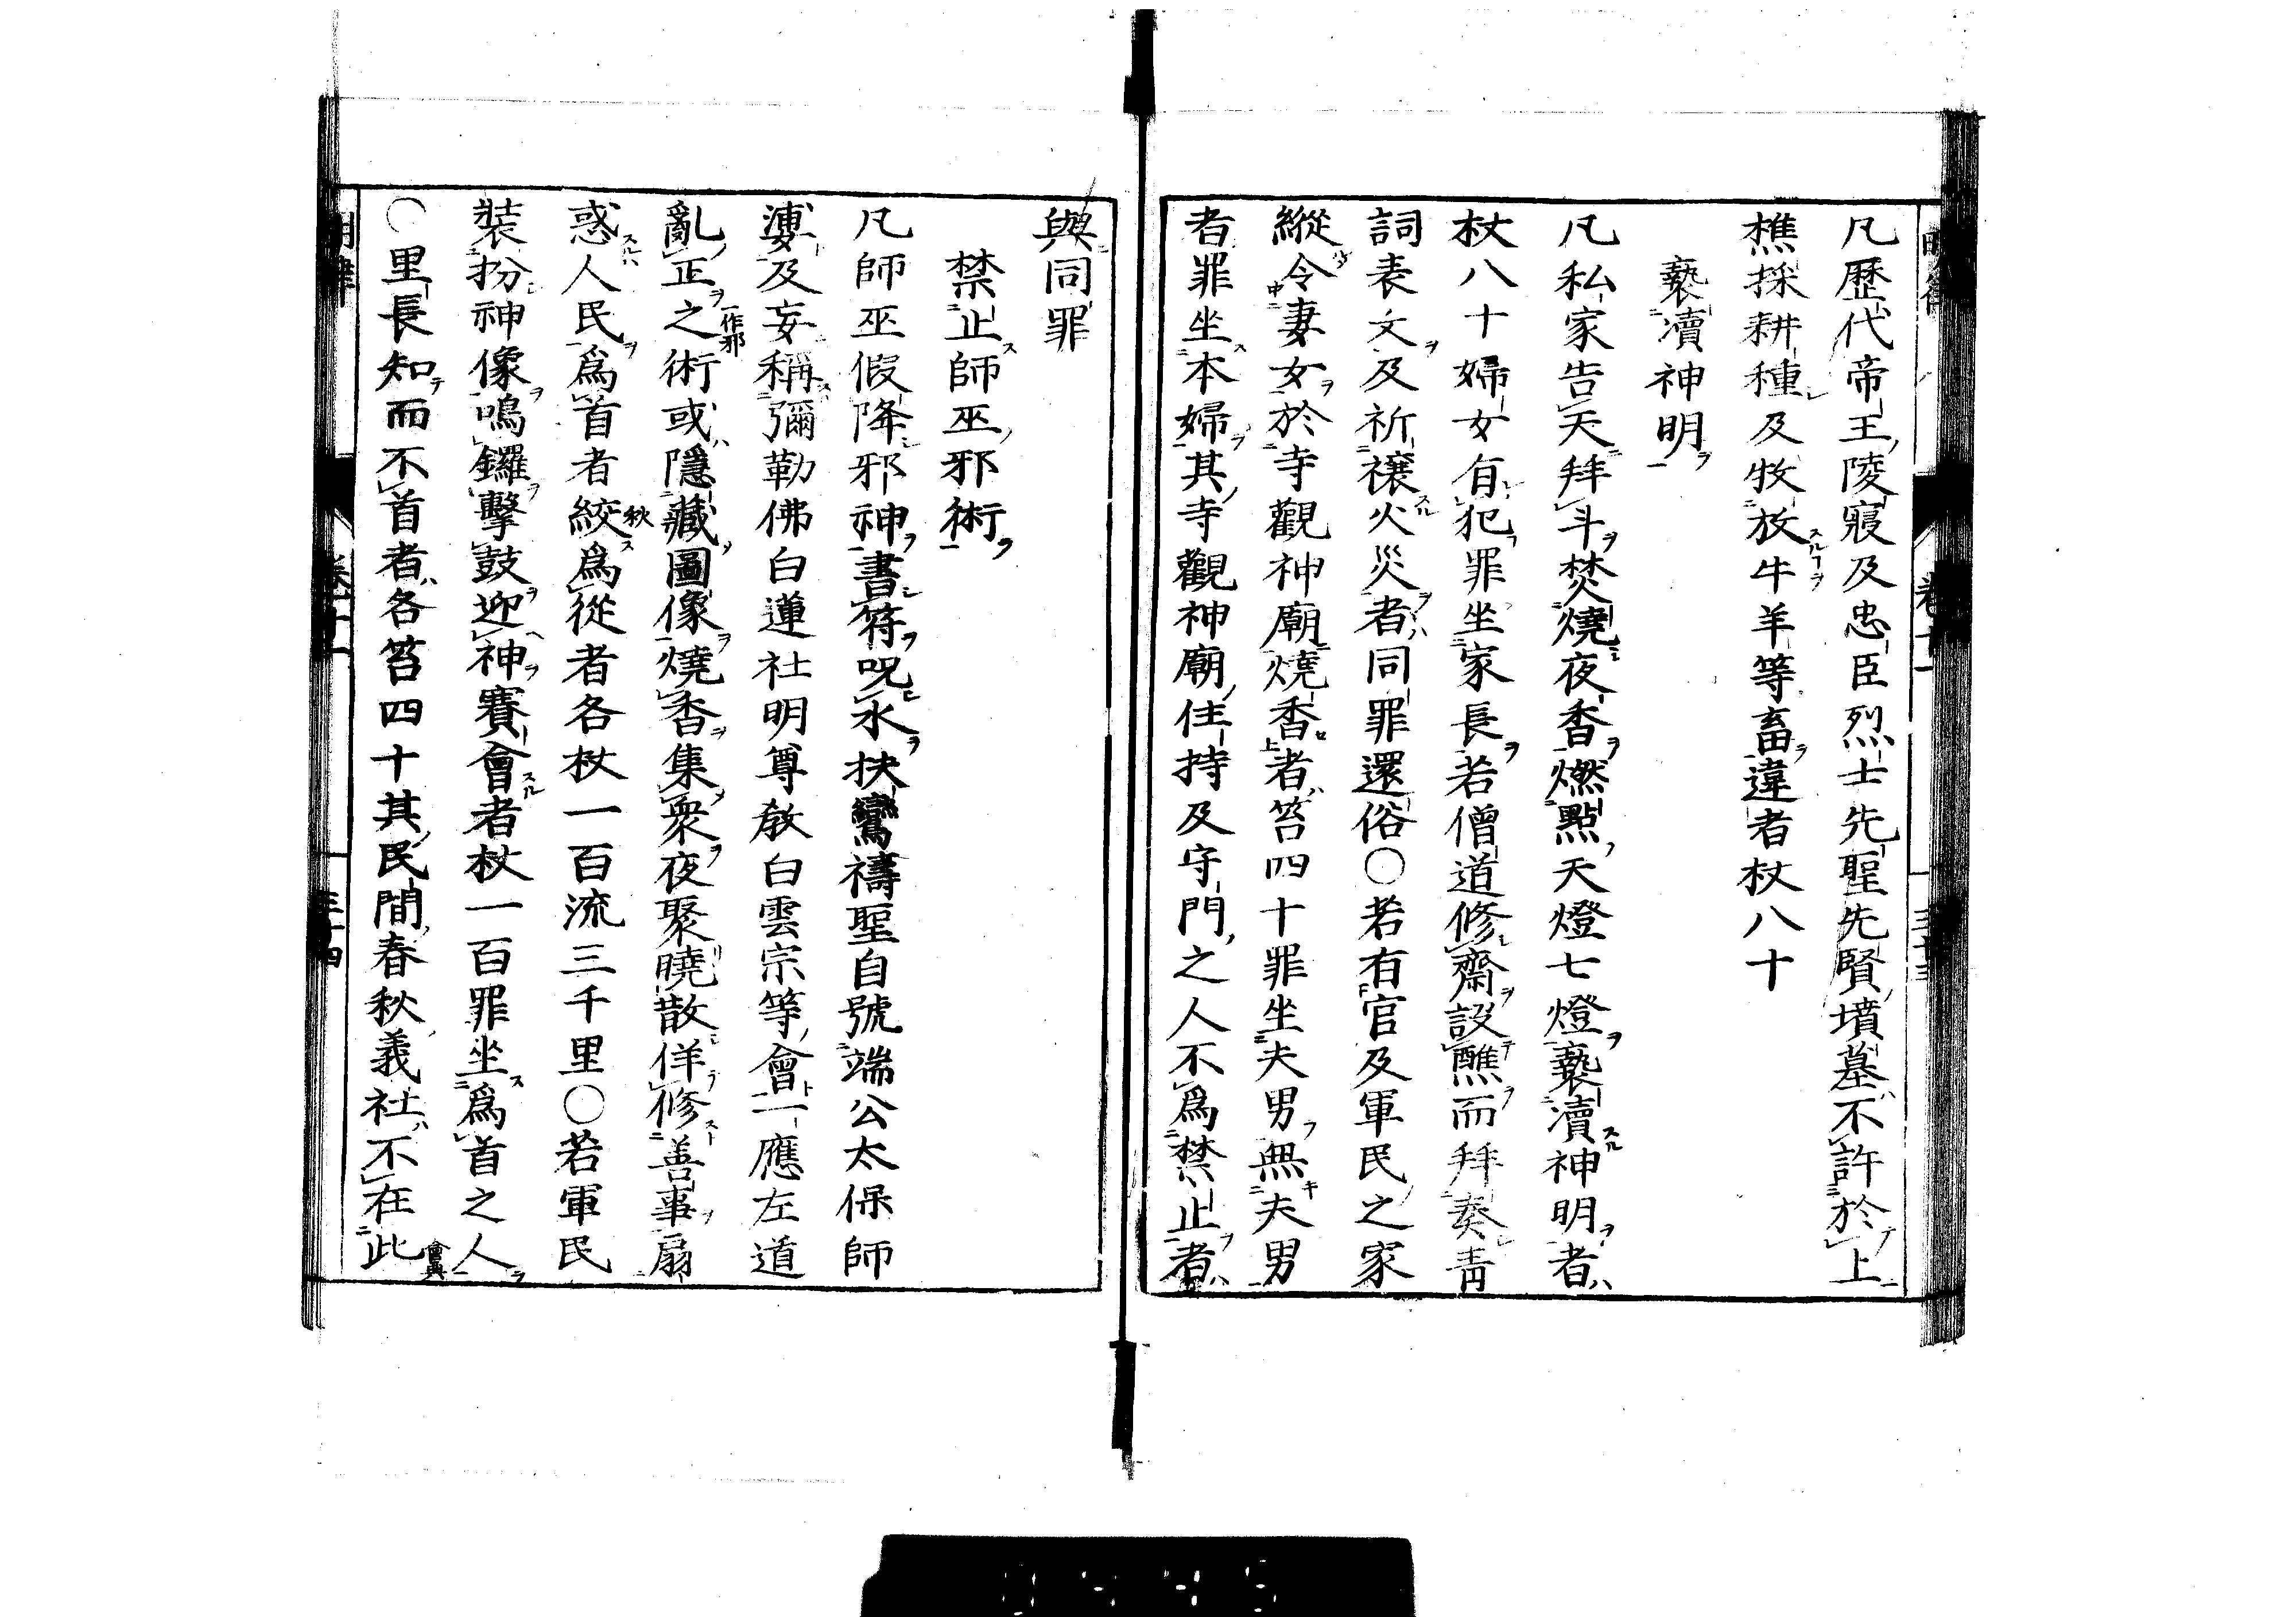 凡歷代帝王陵寢及忠臣烈士先聖先賢墳墓不許於上
樵採耕種及牧放牛羊等畜違者杖八十
褻瀆神明
凡私家告天拜斗焚燒夜香燃點天燈七燈褻瀆神明者
杖八十婦女有犯罪坐家長若僧道修齋設醮而拜奏青
詞表文及祈禳火災者同罪還俗〇若有官及軍民之家
縱令妻女於寺觀神廟燒香者笞四十罪坐夫男無夫男
者罪坐本婦其寺觀神廟住持及守門之人不為禁止者
與同罪
禁止師巫邪術
凡師巫假降邪神書符呪水扶鸞禱聖自號端公太保師
婆及妄稱彌勒佛白蓮社明尊教白雲宗等會一應左道
亂正之術或隱藏圖像燒香集衆夜聚曉散佯修善事扇
一作邪
惑人民為首者絞為從者各杖一百流三千里〇若軍民
秋
裝扮神像鳴鑼擊鼓迎神賽會者杖一百罪坐為首之人
〇里長知而不首者各笞四十其民間春秋義社不在此
會典
卷十一